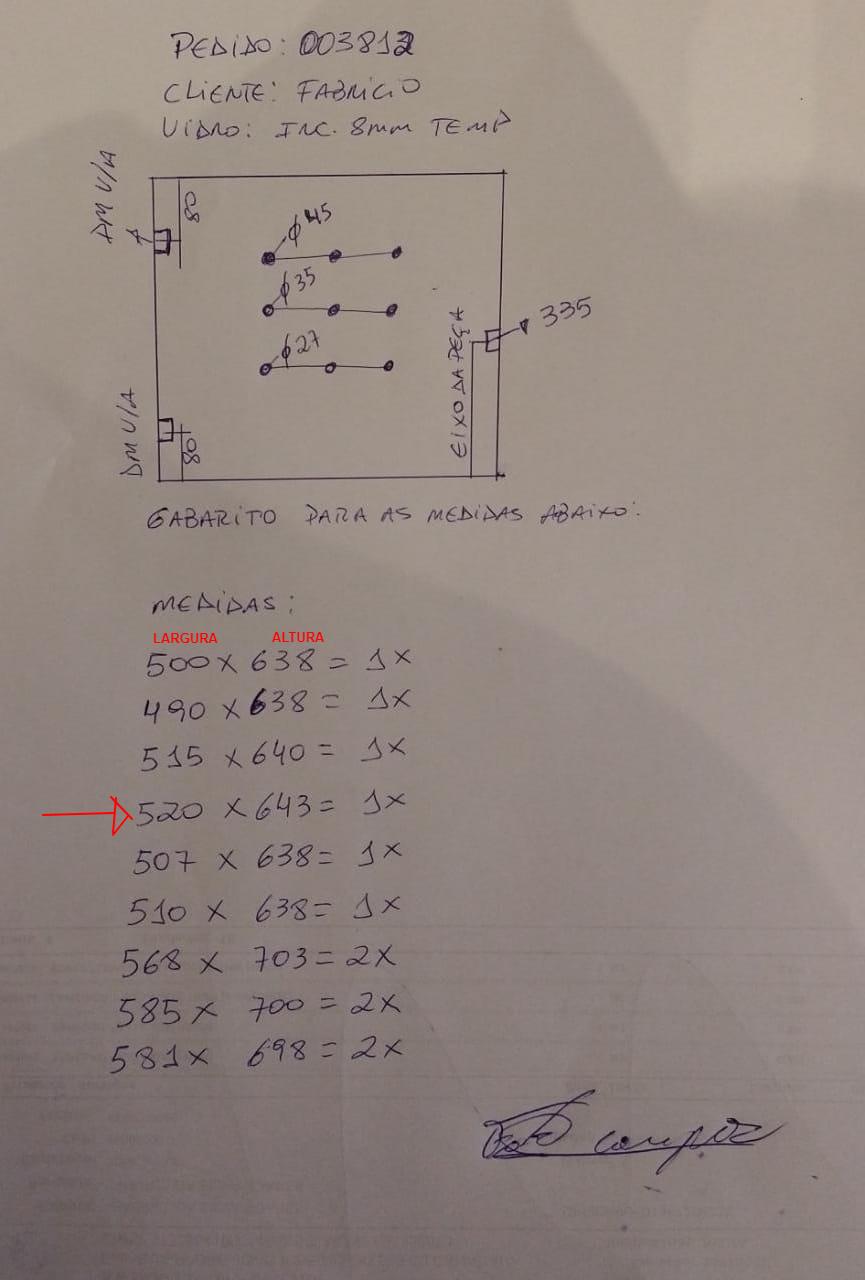 PEDIDO: 003812
CLIENTE: FABRICIO
VIDRO: INC. 8mm TEMP
DM V/A
80
A
Φ45
Φ35
335
Φ27
EIXO DA PEÇA
DM V/A
80
GABARITO PARA AS MEDIDAS ABAIXO:
MEDIDAS:
LARGURA ALTURA
500 x 638 = 1x
490 x 638 = 1x
515 x 640 = 1x
520 x 643 = 1x
507 x 638 = 1x
510 x 638 = 1x
568 x 703 = 2x
585 x 700 = 2x
581 x 698 = 2x